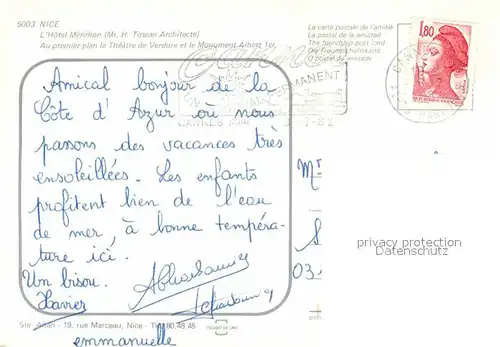 5003 NICE
L'Hôtel Méridien (Mr. H. Toscan Architecte)
Au premier plan le Théâtre de Verdure et le Monument Albert 1er.
La carte postale de l'amitié
La postal de la amistad
The friendship post card
Die Freundschaftskarte
O postal da amizade
1,80
Cannes
UN PERMANENT
CANNES
7-82
Amical bonjour de la
Côte d'Azur où nous
passons des vacances très
ensoleillées. Les enfants
profitent bien de l'eau
de mer, à bonne tempéra-
ture ici.
Un bisou.
Xavier
emmanuelle
Mr
03
privacy protection
Datenschutz
Ste - 19, rue Marceau, Nice - 80.48.46